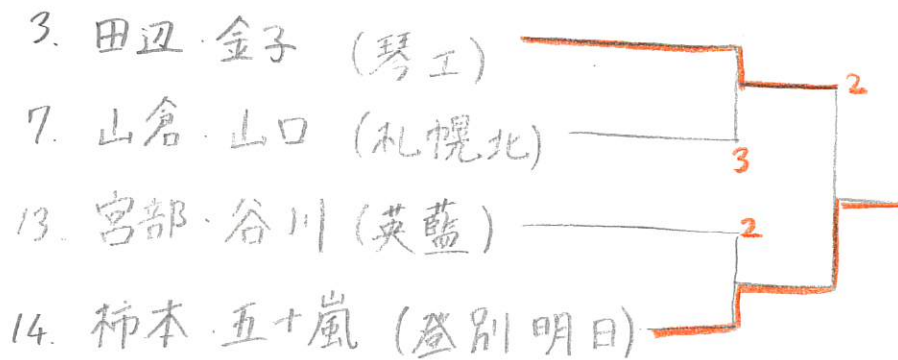 3. 田辺・金子 (琴工) 2
7. 山倉・山口 (札幌北) 3
13. 宮部・谷川 (英藍) 2
14. 柿本・五十嵐 (登別明日)